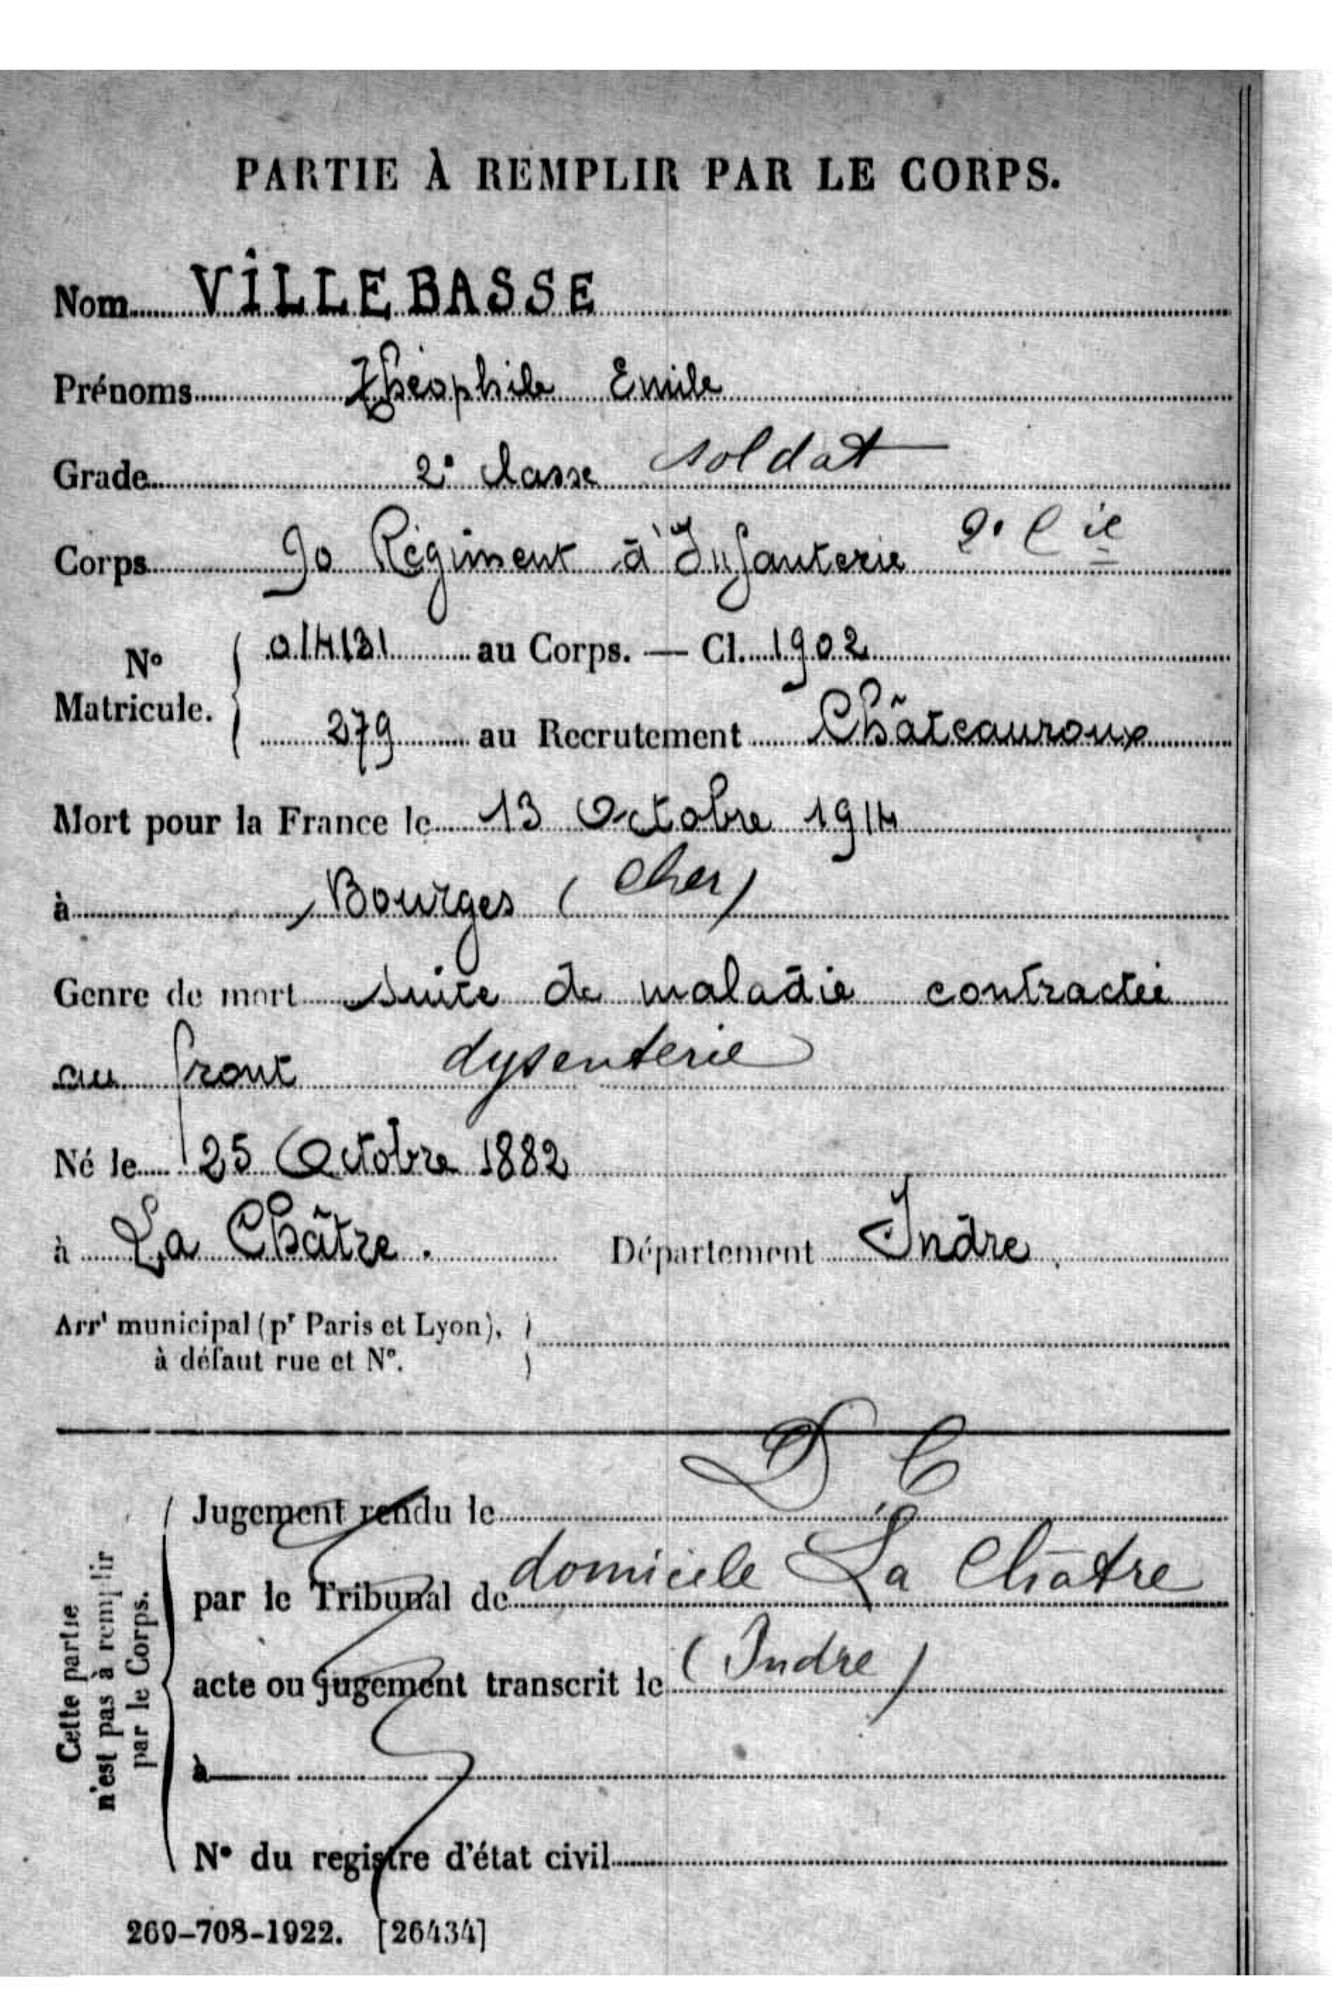 PARTIE À REMPLIR PAR LE CORPS.
Nom VILLEBASSE
Prénoms Théophile Emile
Grade 2e classe soldat
Corps 90 Régiment d'Infanterie 2e Cie
No Matricule. 014131 au Corps. — Cl. 1902
279 au Recrutement Châteauroux
Mort pour la France le 13 Octobre 1914
à Bourges (Cher)
Genre de mort suite de maladie contractée
au front dysenterie
Né le 25 Octobre 1882
à La Châtre. Département Indre
Arrt municipal (pr Paris et Lyon),
à défaut rue et No.
D C
Cette partie n'est pas à remplir par le Corps.
Jugement rendu le
par le Tribunal de domicile La Châtre
acte ou jugement transcrit le (Indre)
à
No du registre d'état civil
269-708-1922. [26434]